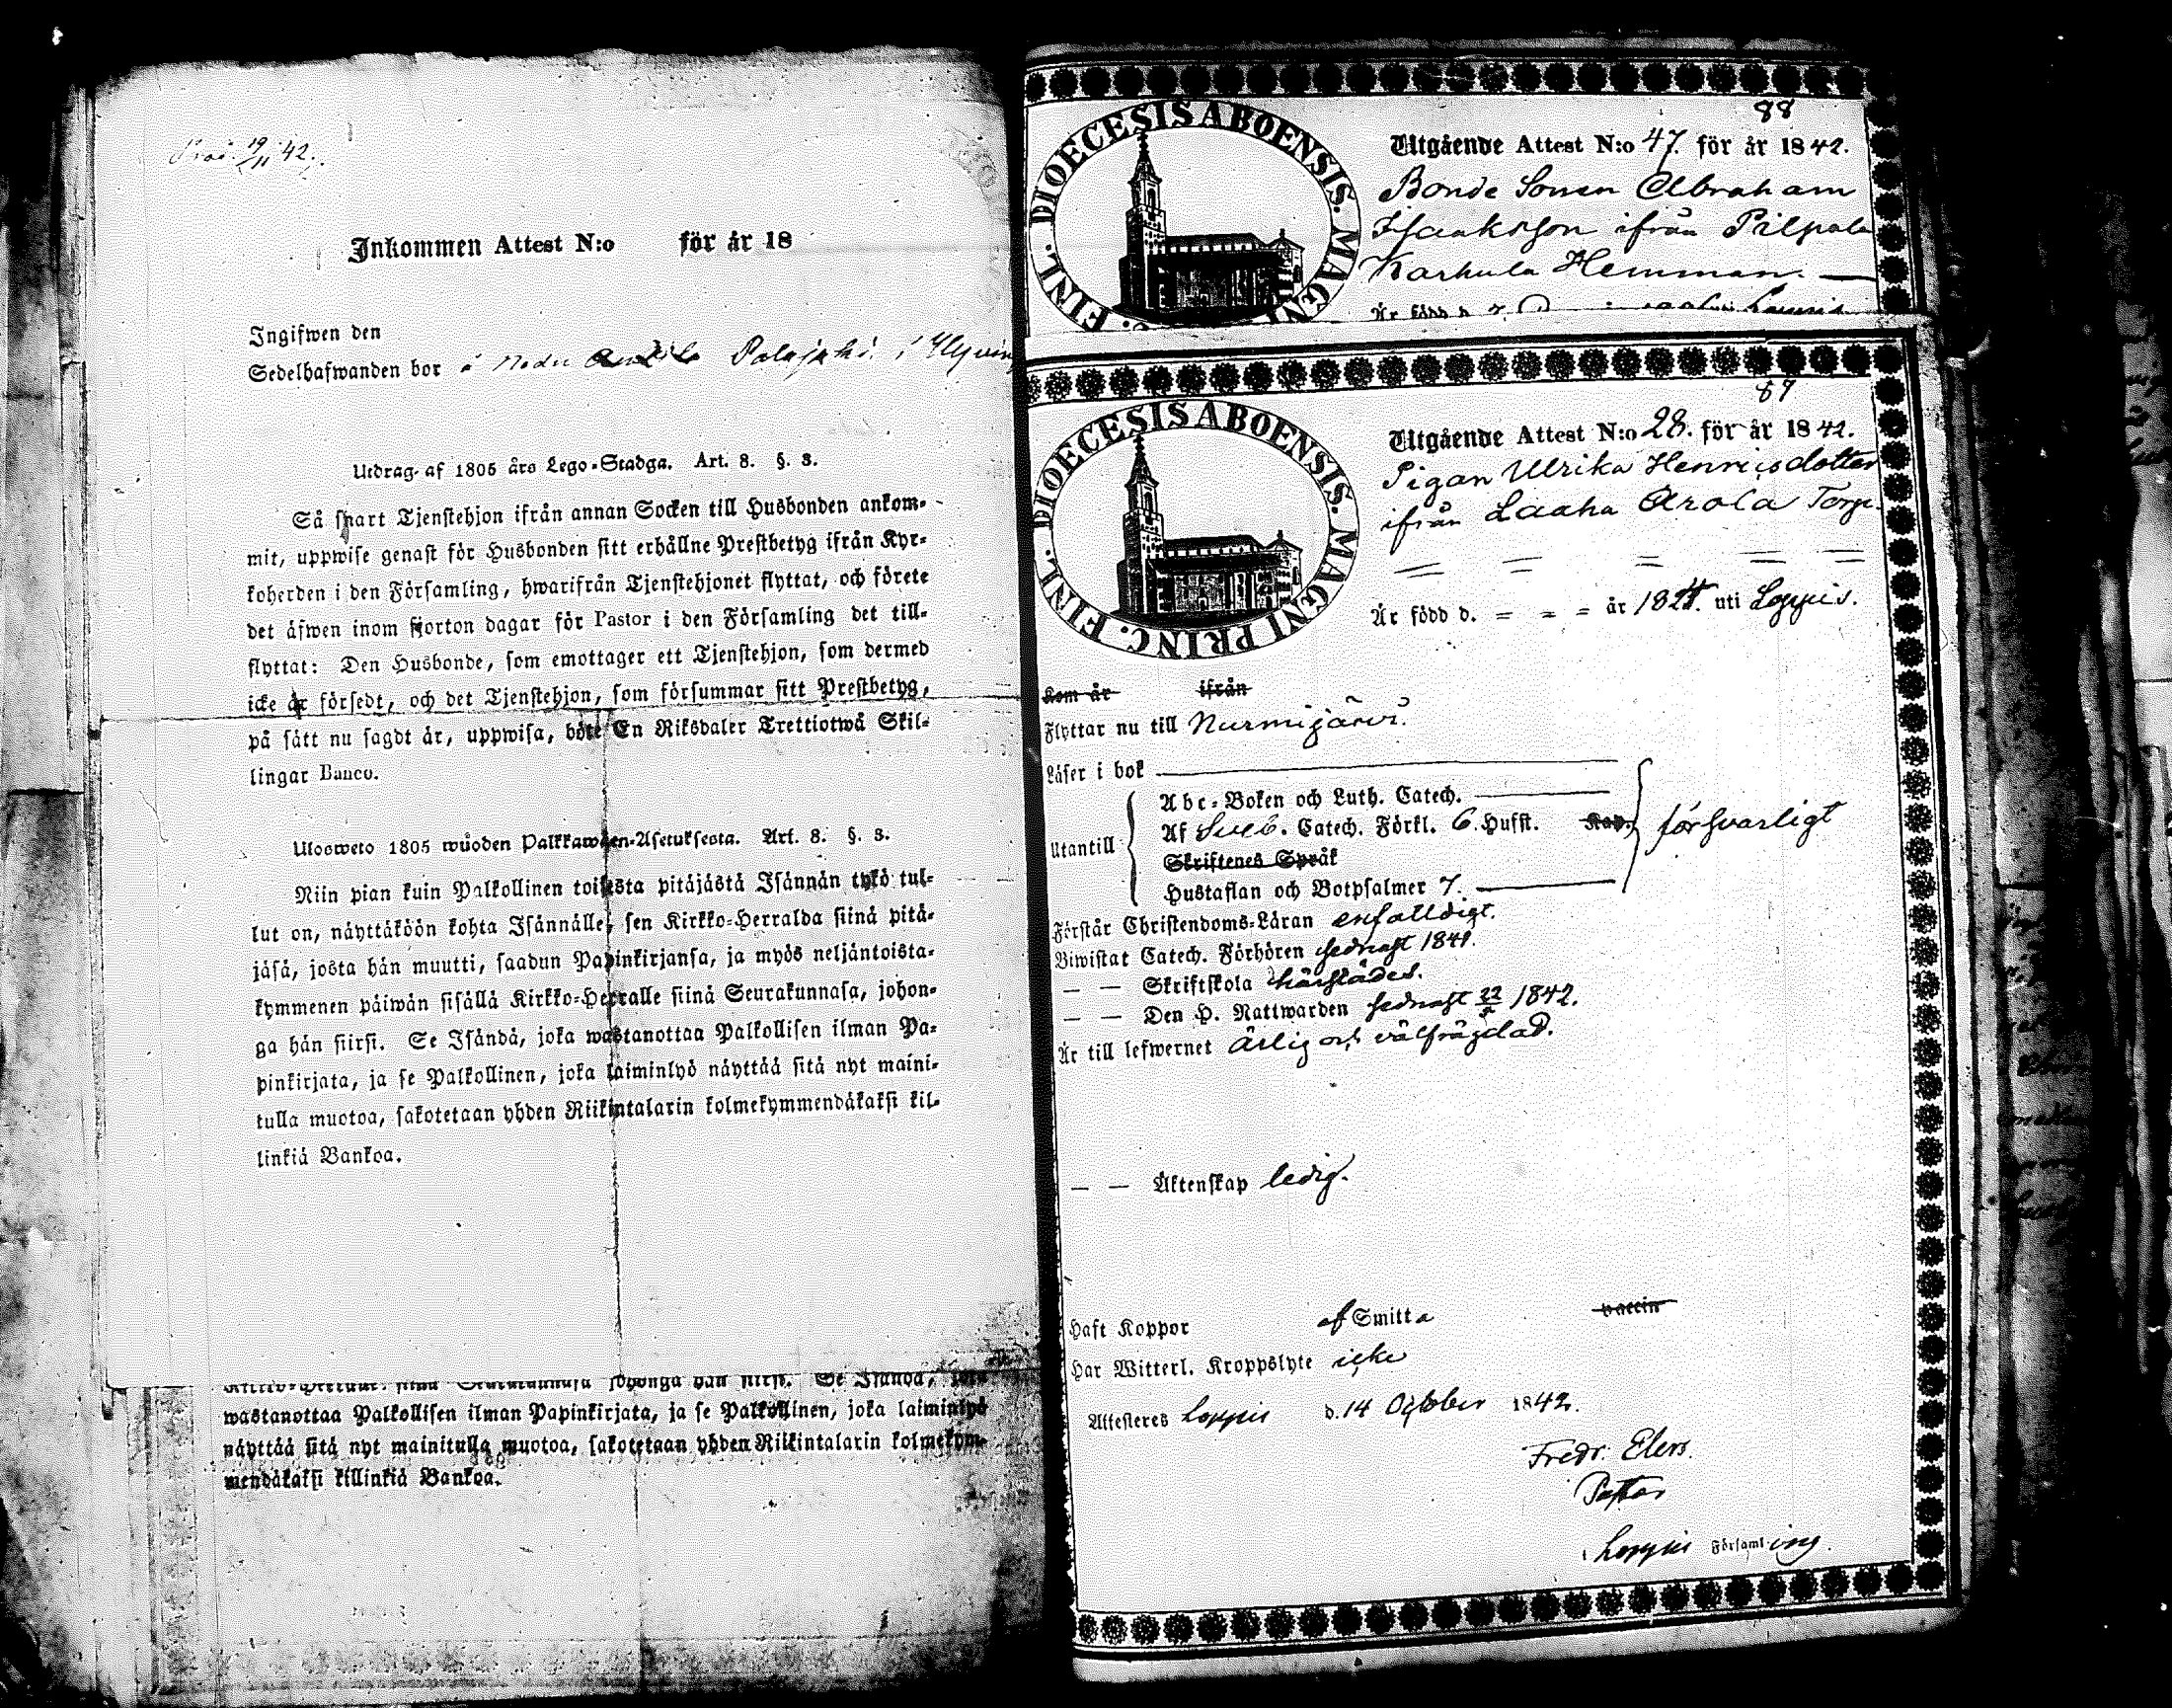 Prod. 19/11 42.
Inkommen Attest N:o för år 18
Ingifwen den
Sedelhafwanden bor å Nedre
Utdrag af 1805 års Lego-Stadga. Art. 8. §. 3.
Så snart Tjenstehjon ifrån annan Socken till Husbonden ankom-
mit, uppwise genast för Husbonden sitt erhållne Prestbetyg ifrån Kyr-
koherden i den Församling, hwarifrån Tjenstehjonet flyttat, och förete
det äfwen inom fjorton dagar för Pastor i den Församling det till-
flyttat: Den Husbonde, som emottager ett Tjenstehjon, som dermed
icke är försedt, och det Tjenstehjon, som försummar sitt Prestbetyg,
på sätt nu sagdt är, uppwisa, böte En Riksdaler Trettiotwå Skil-
lingar Banco.
Ulosweto 1805 wuoden Palkkawäen-Asetuksesta. Art. 8. §. 3.
Niin pian kuin Palkollinen toisesta pitäjästä Isännän tykö tul-
lut on, näyttäköön kohta Isännälle, sen Kirkko-Herralda siinä pitä-
jäsä, josta hän muutti, saadun Papinkirjansa, ja myös neljäntoista-
kymmenen päiwän sisällä Kirkko-Herralle siinä Seurakunnasa, johon-
ga hän siirsi. Se Isändä, joka wastanottaa Palkollisen ilman Pa-
pinkirjata, ja se Palkollinen, joka laiminlyö näyttää sitä nyt maini-
tulla muotoa, sakotetaan yhden Riikintalarin kolmekymmendäkaksi kil-
linkiä Bankoa.
Kirkko-Herralle siinä Seurakunnasa johonga hän siirsi. Se Isändä, joka
wastanottaa Palkollisen ilman Papinkirjata, ja se Palkollinen, joka laiminlyö
näyttää sitä nyt mainitulla muotoa, sakotetaan yhden Riikintalarin kolmekym-
mendäkaksi killinkiä Bankoa.
88
DIOECESIS ABOENSIS. MAGNI FINL.
Utgående Attest N:o 47. för år 1842.
Bonde Sonen Abraham
Isaaksson ifrån Pilpala
Karhula Hemman.
Är född d. 7.
87
DIOECESIS ABOENSIS. MAGNI PRINC. FINL.
Utgående Attest N:o 28. för år 1842.
Pigan Ulrika Henricsdotter
ifrån Laaha Arola Torp.
Är född d. = = = år 1824. uti Loppis.
Kom år ifrån
Flyttar nu till Nurmijärvi.
Läser i bok
Utantill
Abc-Boken och Luth. Catech.
Af Sveb. Catech. Förkl. 6. Hufst. Kap. försvarligt
Skriftenes Språk
Hustaflan och Botpsalmer 7.
Förstår Christendoms-Läran enfaldigt.
Biwistat Catech. Förhören sednast 1841.
— — Skriftskola härstädes.
— — Den H. Nattwarden sednast 1842.
Är till lefwernet ärlig och välfrägdad.
— — Äktenskap ledig.
Haft Koppor af Smitta vaccin
Har Witterl. Kroppslyte icke
Attesteres Loppis d. 14 October 1842.
Fredr. Elers.
Pastor
i Loppis Församling.